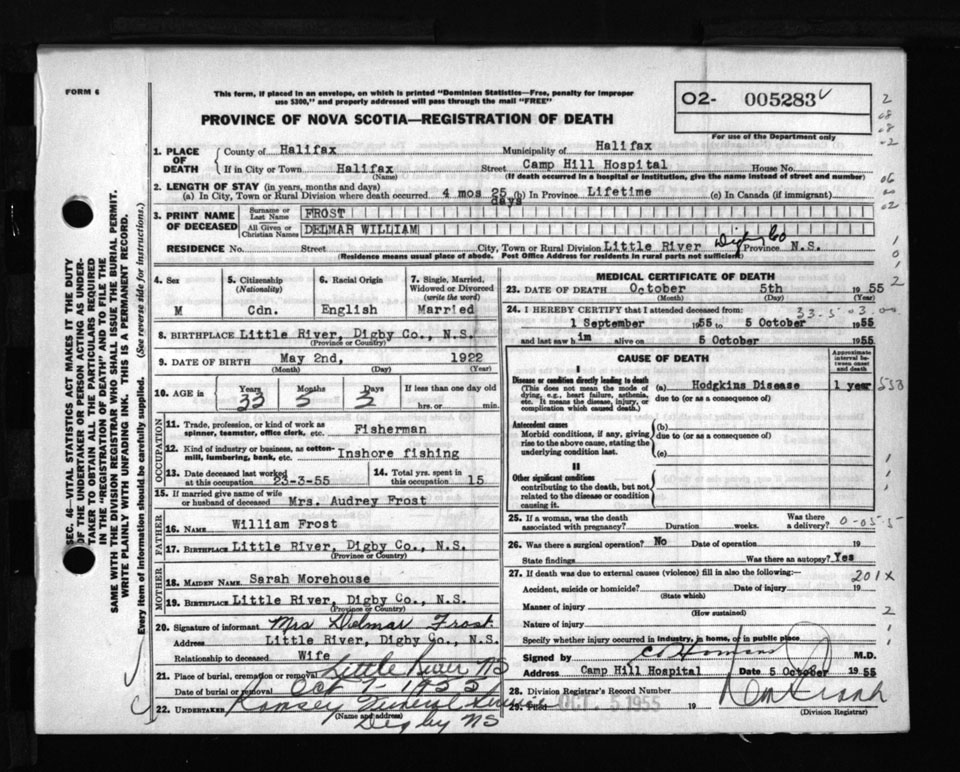 FORM 6
This form, if placed in an envelope, on which is printed "Dominion Statistics—Free, penalty for improper
use $300," and properly addressed will pass through the mail "FREE"
O2- 005283
For use of the Department only
PROVINCE OF NOVA SCOTIA—REGISTRATION OF DEATH
SEC. 46—VITAL STATISTICS ACT MAKES IT THE DUTY
OF THE UNDERTAKER OR PERSON ACTING AS UNDER-
TAKER TO OBTAIN ALL THE PARTICULARS REQUIRED
IN THE "REGISTRATION OF DEATH" AND TO FILE THE
SAME WITH THE DIVISION REGISTRAR WHO SHALL ISSUE THE BURIAL PERMIT.
WRITE PLAINLY WITH UNFADING INK. THIS IS A PERMANENT RECORD.
Every item of information should be carefully supplied. (See reverse side for instructions.)
1. PLACE OF DEATH
County of Halifax Municipality of Halifax
If in City or Town Halifax Street Camp Hill Hospital House No.
(Name) (If death occurred in a hospital or institution, give the name instead of street and number)
2. LENGTH OF STAY (in years, months and days)
(a) In City, Town or Rural Division where death occurred 4 mos 25 days (b) In Province Lifetime (c) In Canada (if immigrant)
3. PRINT NAME OF DECEASED
Surname or Last Name FROST
All Given or Christian Names DELMAR WILLIAM
RESIDENCE No. Street City, Town or Rural Division Little River Digby Co Province N.S.
(Residence means usual place of abode. Post Office Address for residents in rural parts not sufficient)
4. Sex M
5. Citizenship (Nationality) Cdn.
6. Racial Origin English
7. Single, Married, Widowed or Divorced (write the word) Married
8. BIRTHPLACE Little River, Digby Co., N.S.
(Province or Country)
9. DATE OF BIRTH May 2nd, 1922
(Month) (Day) (Year)
10. AGE in Years 33 Months 5 Days 3 If less than one day old hrs. or min.
OCCUPATION
11. Trade, profession, or kind of work as spinner, teamster, office clerk, etc. Fisherman
12. Kind of industry or business, as cotton-mill, lumbering, bank, etc. Inshore fishing
13. Date deceased last worked at this occupation 23-3-55
14. Total yrs. spent in this occupation 15
15. If married give name of wife or husband of deceased Mrs. Audrey Frost
FATHER
16. NAME William Frost
17. BIRTHPLACE Little River, Digby Co., N.S.
(Province or Country)
MOTHER
18. MAIDEN NAME Sarah Morehouse
19. BIRTHPLACE Little River, Digby Co., N.S.
(Province or Country)
20. Signature of informant Mrs Delmar Frost
Address Little River, Digby Co., N.S.
Relationship to deceased Wife
21. Place of burial, cremation or removal Little River NS
Date of burial or removal Oct 7-1955
22. UNDERTAKER Ramsey Funeral
(Name and address) Digby NS
MEDICAL CERTIFICATE OF DEATH
23. DATE OF DEATH October 5th 1955
(Month) (Day) (Year)
24. I HEREBY CERTIFY that I attended deceased from:
33-5-03.00
1 September 1955 to 5 October 1955
and last saw him alive on 5 October 1955
CAUSE OF DEATH
Approximate interval between onset and death
I
Disease or condition directly leading to death
(This does not mean the mode of dying, e.g., heart failure, asthenia, etc. It means the disease, injury, or complication which caused death.)
(a) Hodgkins Disease 1 year
due to (or as a consequence of)
Antecedent causes
Morbid conditions, if any, giving rise to the above cause, stating the underlying condition last.
(b)
due to (or as a consequence of)
(c)
II
Other significant conditions
contributing to the death, but not related to the disease or condition causing it.
25. If a woman, was the death associated with pregnancy? Duration weeks. Was there a delivery? 0-05.5-5
26. Was there a surgical operation? No Date of operation 19
State findings Was there an autopsy? Yes
27. If death was due to external causes (violence) fill in also the following:— 201X
Accident, suicide or homicide? Date of injury 19
(State which)
Manner of injury
(How sustained)
Nature of injury
Specify whether injury occurred in industry, in home, or in public place
Signed by M.D.
Address Camp Hill Hospital Date 5 October 1955
28. Division Registrar's Record Number
29. Filed OCT. 5 1955 19
(Division Registrar)